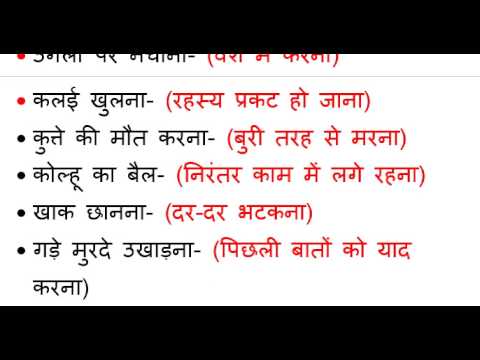 उंगली पर नचाना- (वश में करना)
कलई खुलना- (रहस्य प्रकट हो जाना)
कुत्ते की मौत करना- (बुरी तरह से मरना)
कोल्हू का बैल- (निरंतर काम में लगे रहना)
खाक छानना- (दर-दर भटकना)
गड़े मुरदे उखाड़ना- (पिछली बातों को याद
करना)